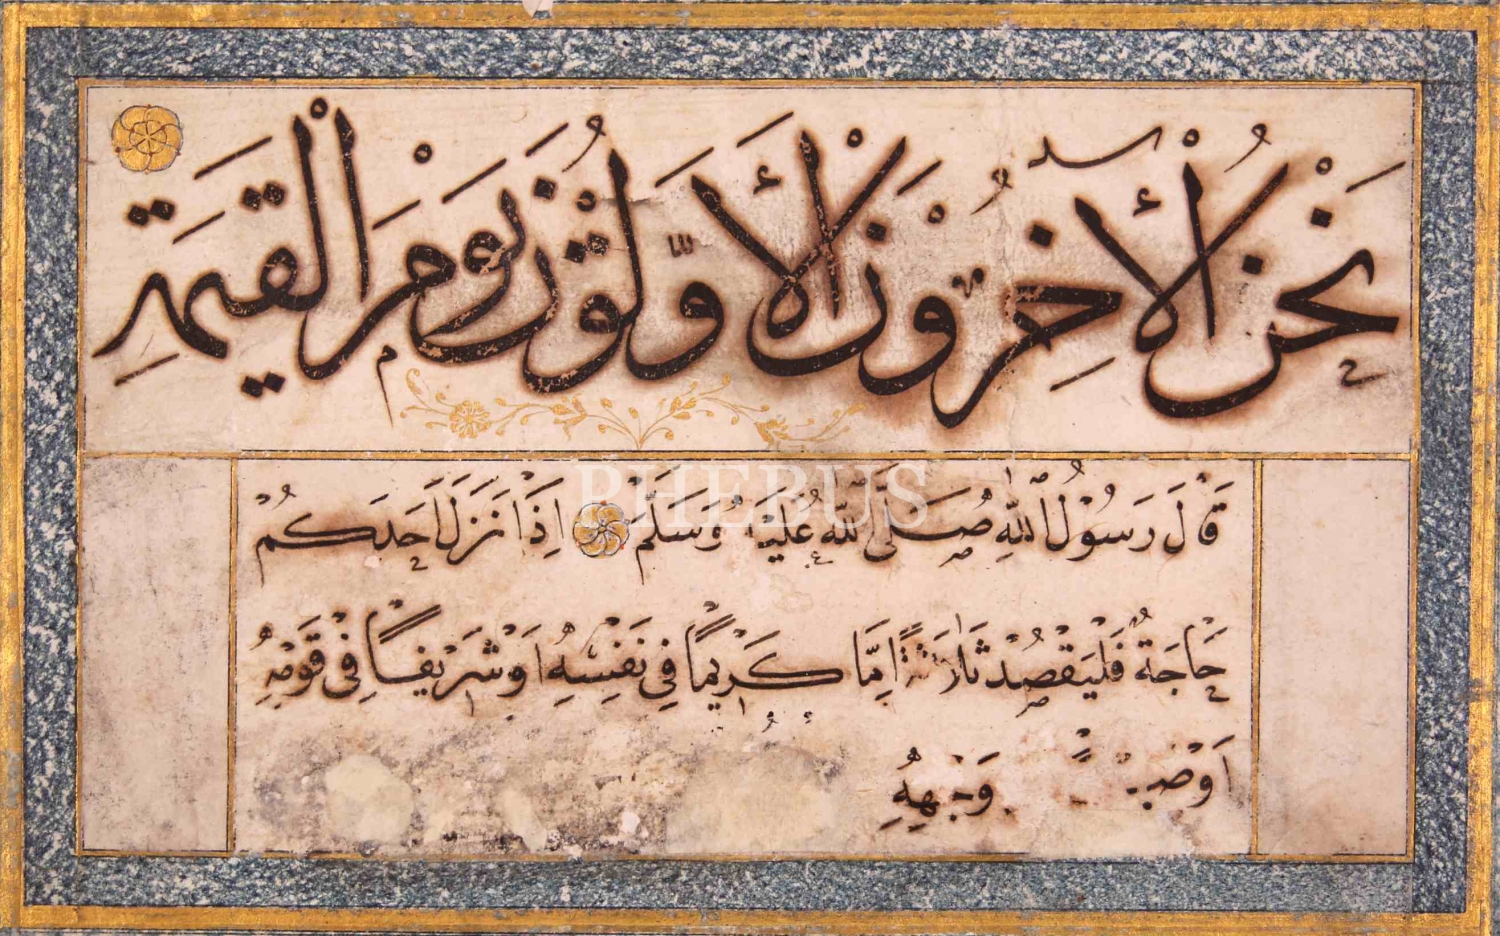 نَحْنُ الْأٰخِرُونَ الْأَوَّلُونَ يَوْمَ الْقِيٰمَةِ
قَالَ رَسُولُ اللّٰهِ صَلَّى اللّٰهُ عَلَيْهِ وَسَلَّمَ اِذَا نَزَلَ اَحَدَكُمْ
حَاجَةٌ فَلْيَقْصُدْ ثَلَاثَةً اِمَّا كَرِيمًا فِي نَفْسِهِ اَوْ شَرِيفًا فِي قَوْمِهِ
اَوْ وَجْهِهِ
PHEBUS